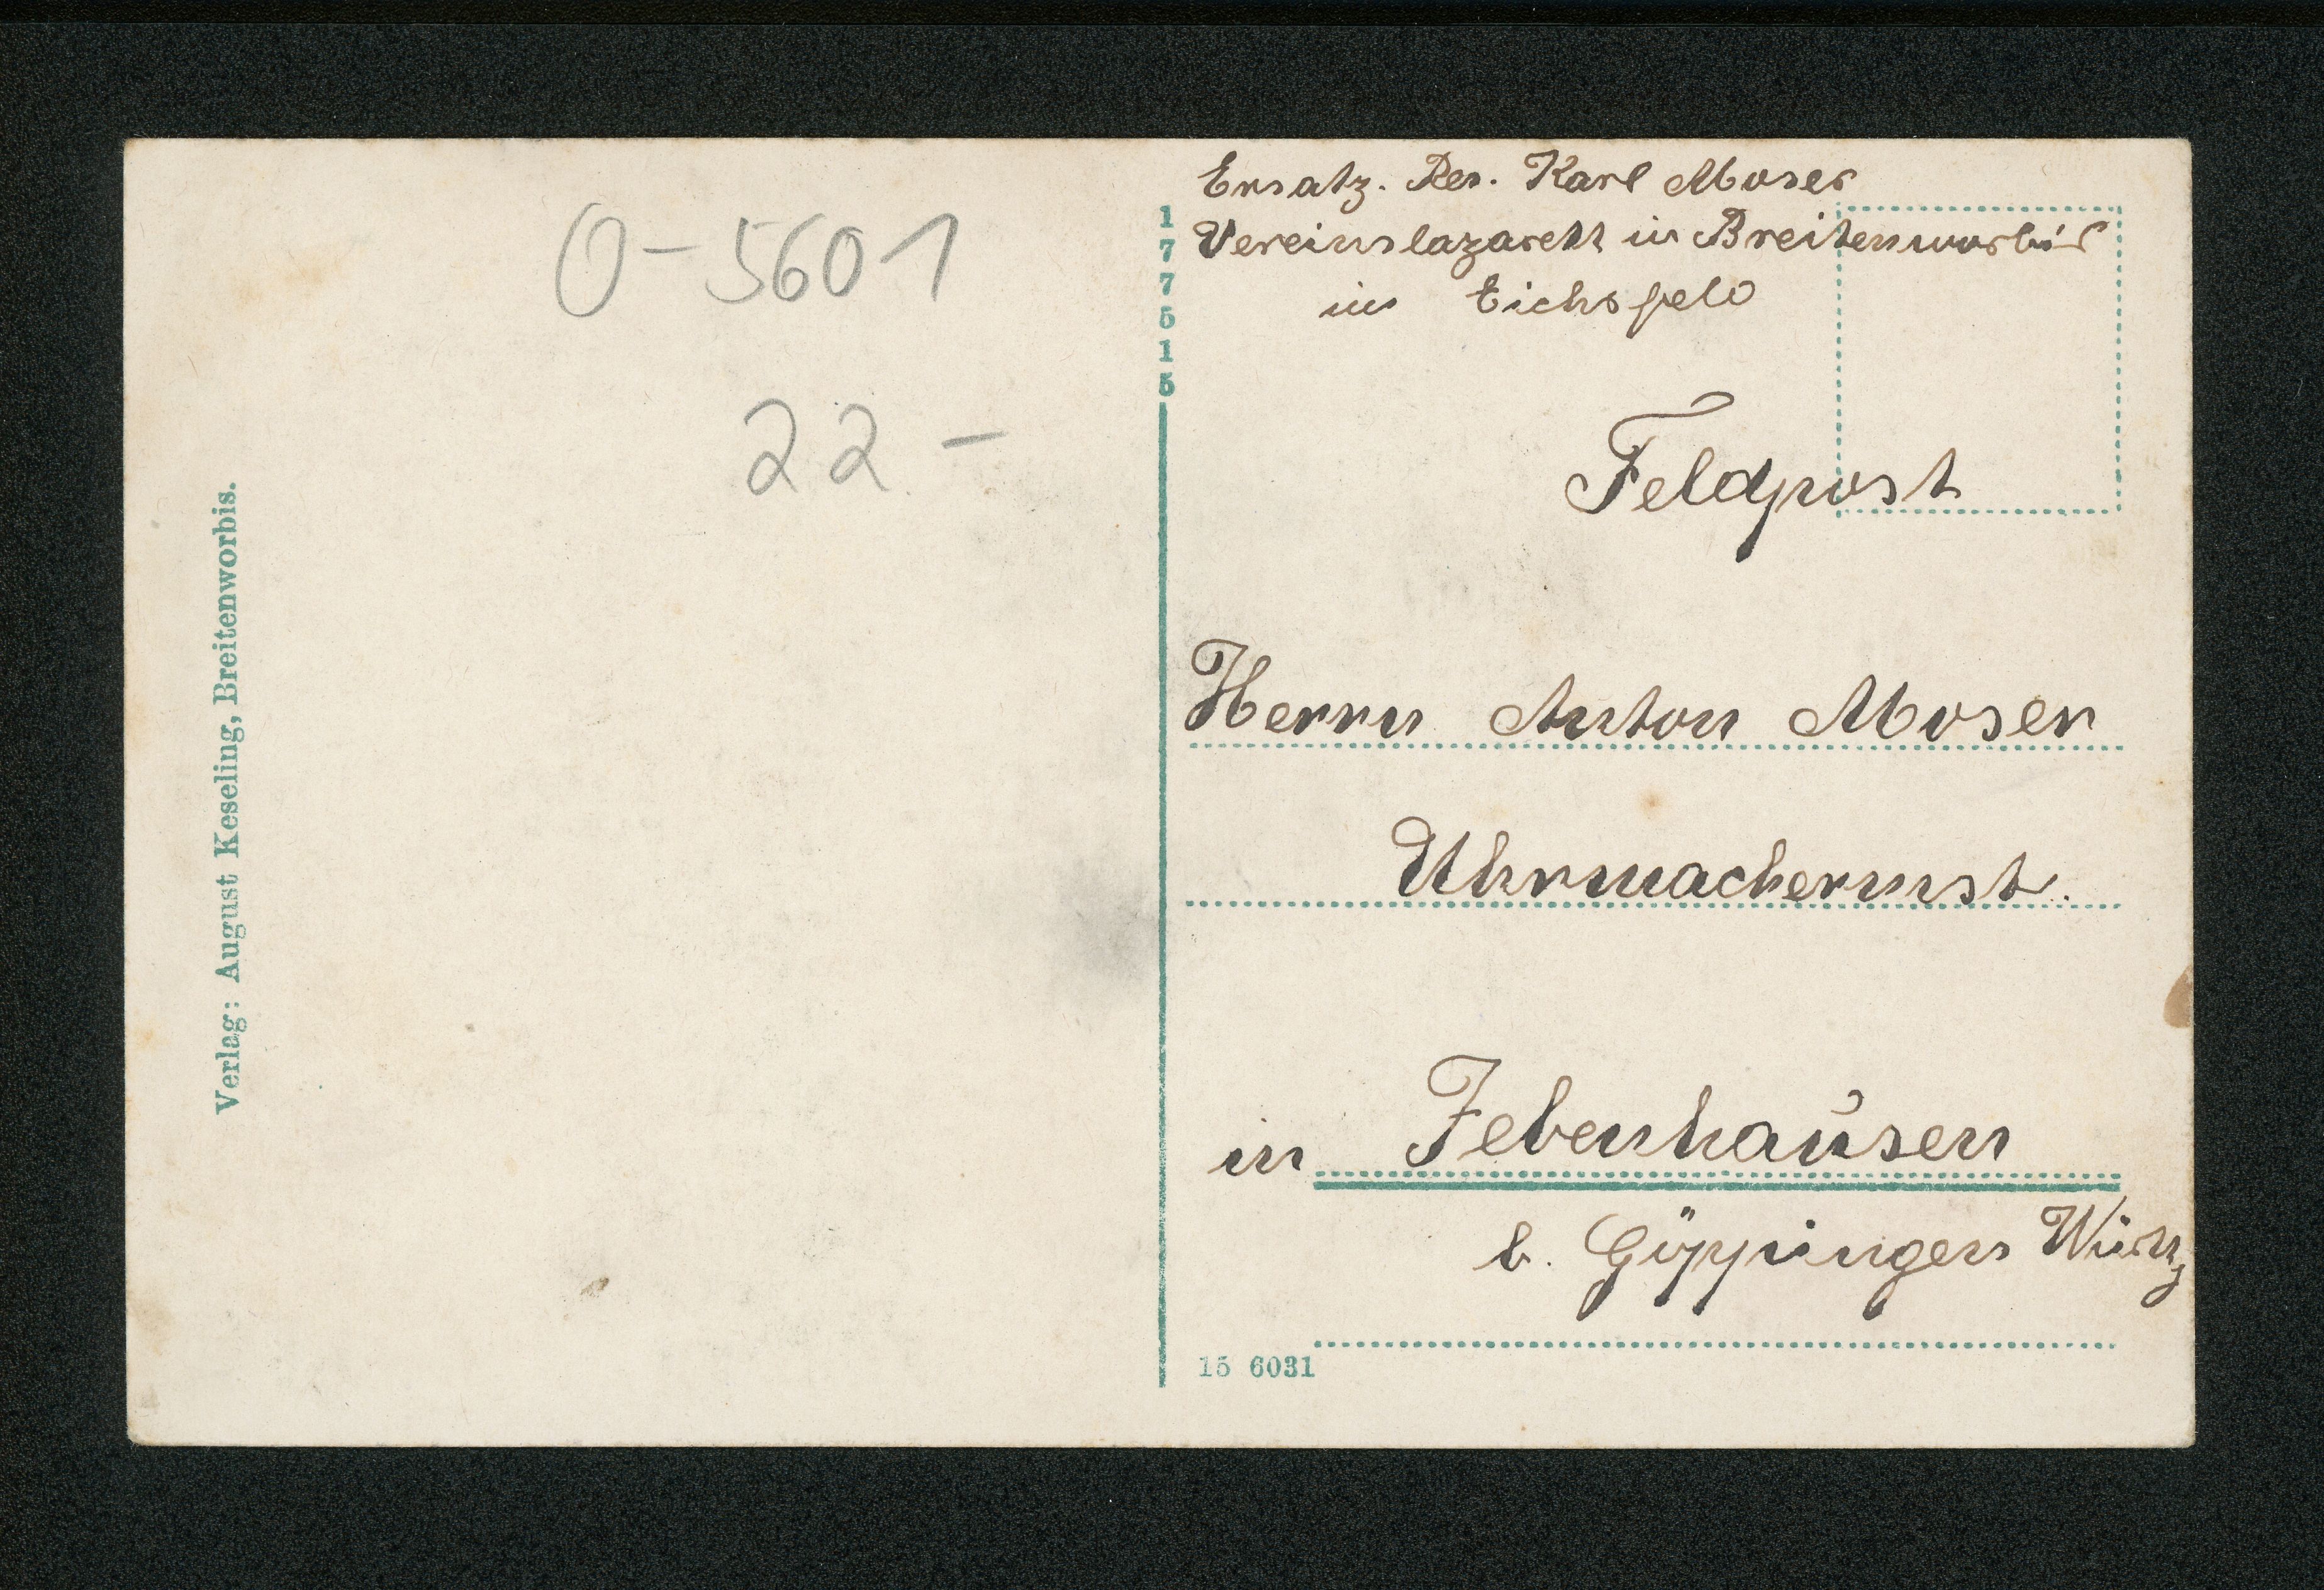 Verlag: August Keseling, Breitenworbis.
0-5601
22-
177515
Ersatz. Res. Karl Moser
Vereinslazarett in Breitenworbis
im Eichsfeld
Feldpost
Herrn Anton Moser
Uhrmachermst.
in Jebenhausen
b. Göppingen Württ,
15 6031